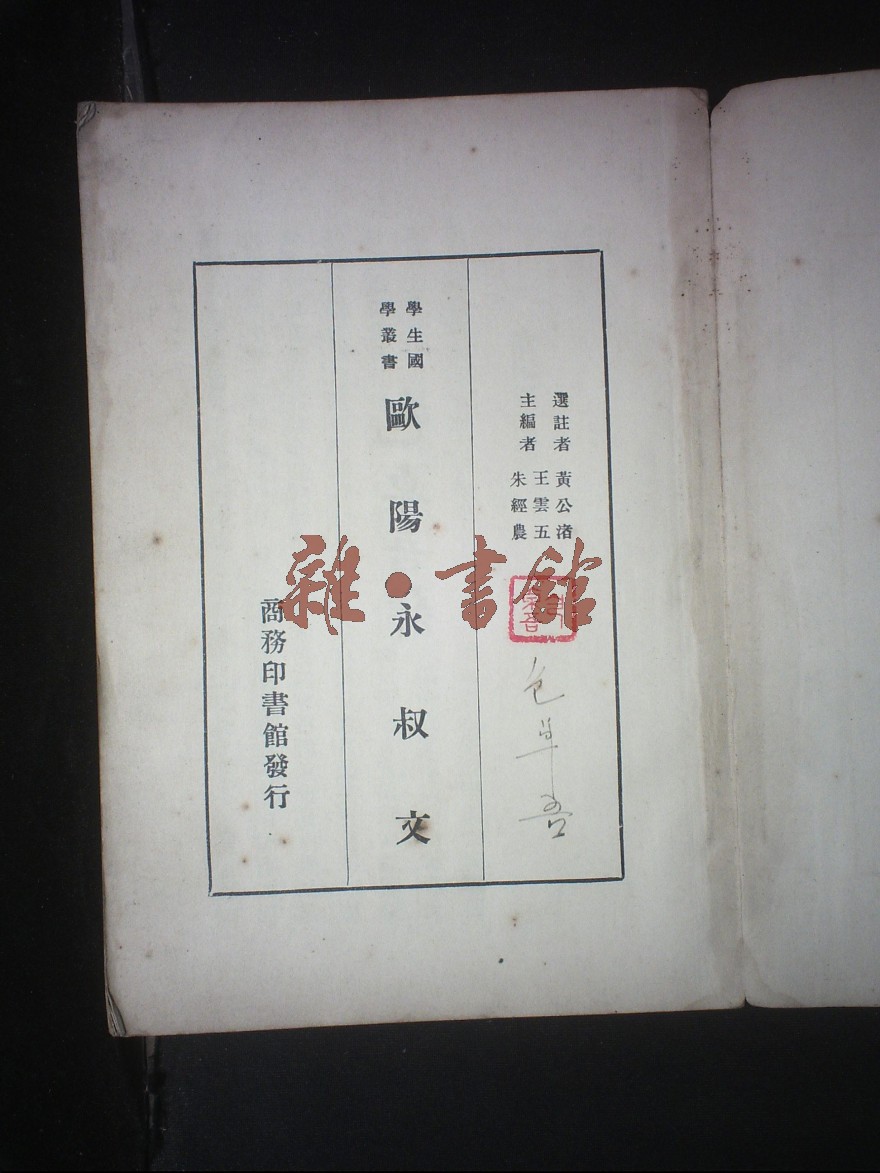 選註者 黃公渚
主編者 王雲五
朱經農
學生國
學叢書
歐陽永叔文
商務印書館發行
雜·書館